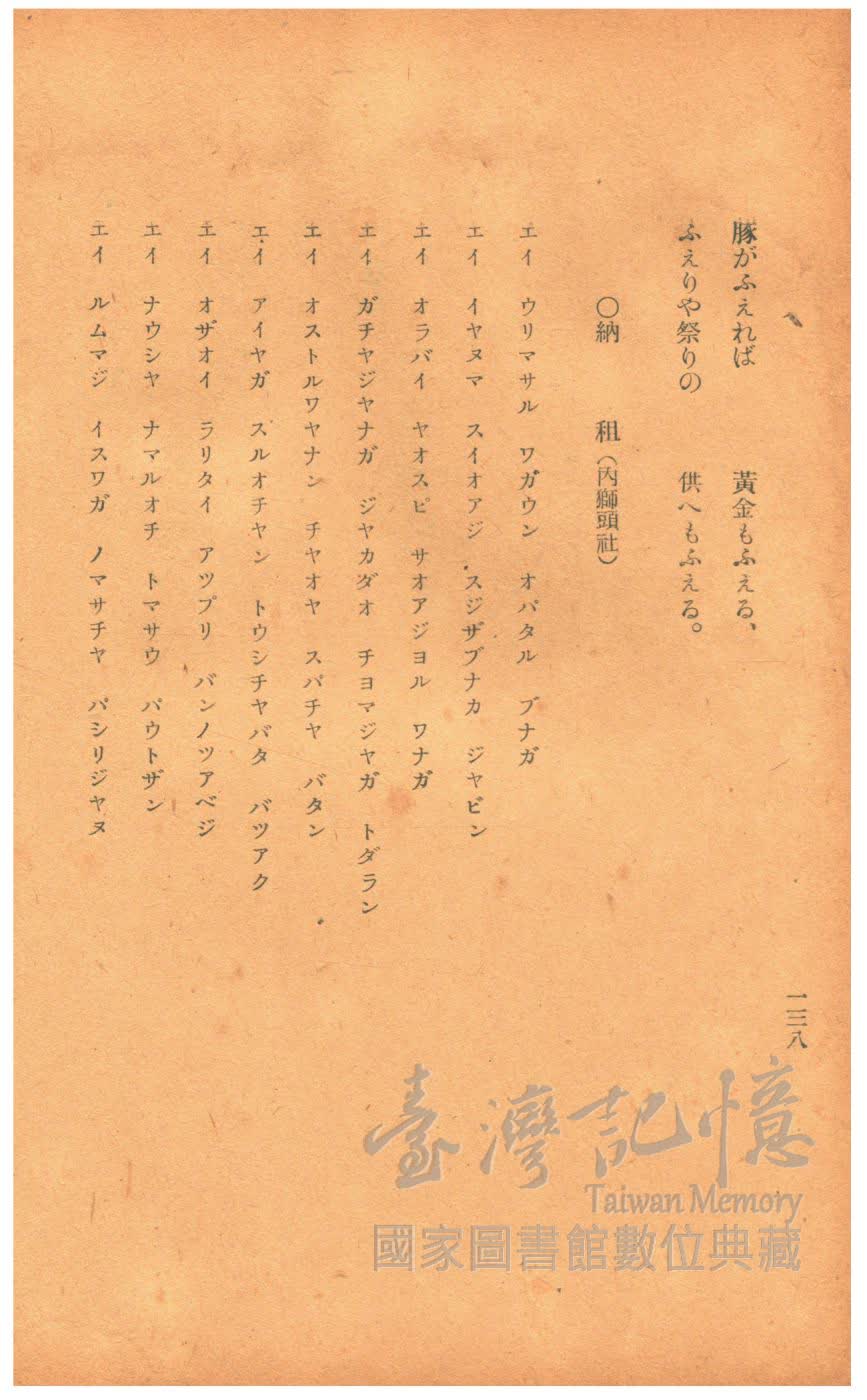 一三八
豚がふえれば　黃金もふえる、
ふえりや祭りの　供へもふえる。
〇納　租（內獅頭社）
エイ　ウリマサル　ワガウン　オパタル　ブナガ
エイ　イヤヌマ　スイオアジ　スジザブナカ　ジヤビン
エイ　オラバイ　ヤオスピ　サオアジヨル　ワナガ
エイ　ガチヤジヤナガ　ジヤカダオ　チヨマジヤガ　トダラン
エイ　オストルワヤナン　チヤオヤ　スパチヤ　バタン
エイ　アイヤガ　スルオチヤン　トウシチヤバタ　バツアク
エイ　オザオイ　ラリタイ　アツプリ　バンノツアベジ
エイ　ナウシヤ　ナマルオチ　トマサウ　パウトザン
エイ　ルムマジ　イスワガ　ノマサチヤ　パシリジヤヌ
臺灣記憶
Taiwan Memory
國家圖書館數位典藏